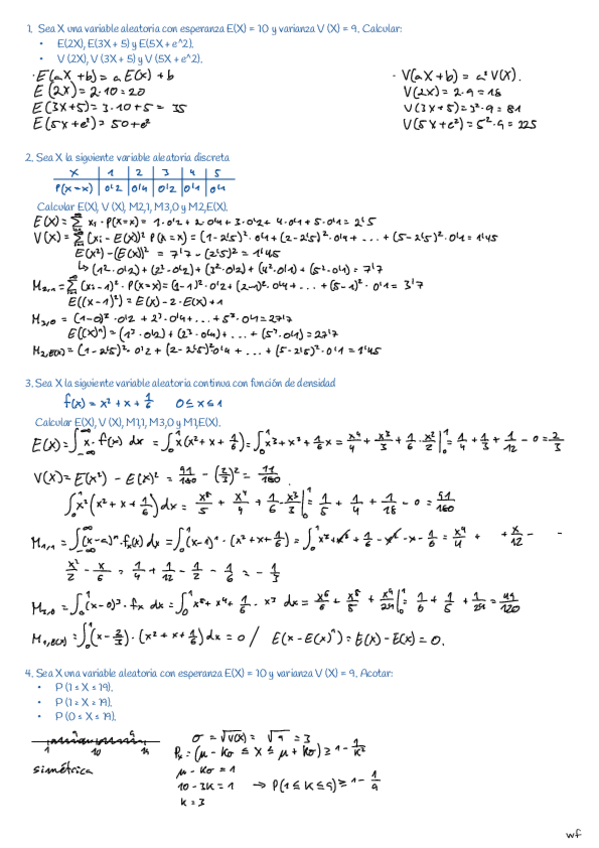 1. Sea X una variable aleatoria con esperanza E(X) = 10 y varianza V (X) = 9. Calcular:
• E(2X), E(3X + 5) y E(5X + e^2).
• V (2X), V (3X + 5) y V(5X + e^2).
· E(aX+b) = a E(X) + b
E(2X) = 2·10 = 20
E(3X+5) = 3·10+5 = 35
E(5X+e²) = 50+e²
· V(aX+b) = a² V(X).
V(2X) = 2·9 = 18
V(3X+5) = 3²·9 = 81
V(5X+e²) = 5²·9 = 225
2. Sea X la siguiente variable aleatoria discreta
X | 1 | 2 | 3 | 4 | 5
P(X=x) | 0'2 | 0'4 | 0'2 | 0'1 | 0'1
Calcular E(X), V (X), M2,1, M3,0 y M2,E(X).
E(X) = Σ xi · P(X=x) = 1·0'2 + 2·0'4 + 3·0'2 + 4·0'1 + 5·0'1 = 2'5
V(X) = Σ (xi - E(X))² P(X=x) = (1-2'5)²·0'4 + (2-2'5)²·0'4 + ... + (5-2'5)²·0'1 = 1'45
E(X²) - (E(X))² = 7'7 - (2'5)² = 1'45
↳ (1²·0'2) + (2²·0'2) + (3²·0'2) + (4²·0'1) + (5²·0'1) = 7'7
M2,1 = Σ (xi - 1)² · P(X=x) = (1-1)²·0'2 + (2-1)²·0'4 + ... + (5-1)²·0'1 = 3'7
E((X-1)²) = E(X) - 2·E(X) + 1
M3,0 = (1-0)³·0'2 + 2³·0'4 + ... + 5³·0'1 = 27'7
E((X)ⁿ) = (1³·0'2) + (2³·0'4) + ... + (5³·0'1) = 27'7
M2,E(X) = (1-2'5)²·0'2 + (2-2'5)²0'4 + ... + (5-2'5)²·0'1 = 1'45
3. Sea X la siguiente variable aleatoria continua con función de densidad
f(x) = x² + x + 1/6 0 ≤ x ≤ 1
Calcular E(X), V (X), M1,1, M3,0 y M1,E(X).
E(X) = ∫ x · f(x) dx = ∫ x(x² + x + 1/6) = ∫ x³ + x² + 1/6 x = x⁴/4 + x³/3 + 1/6 · x²/2 | = 1/4 + 1/3 + 1/12 - 0 = 2/3
V(X) = E(X²) - E(X)² = 91/180 - (2/3)² = 11/180
∫ x²(x² + x + 1/6) dx = x⁵/5 + x⁴/4 + 1/6 · x³/3 | = 1/5 + 1/4 + 1/18 - 0 = 91/180
M1,1 = ∫ (x-a)ⁿ · fx(x) dx = ∫ (x-1)¹ · (x² + x + 1/6) = ∫ x³ + x² + 1/6 - x² - x - 1/6 = x⁴/4 + x/12 -
x²/2 - x/6 = 1/4 + 1/12 - 1/2 - 1/6 = - 1/3
M3,0 = ∫ (x-0)³ · fx dx = ∫ x⁵ + x⁴ + 1/6 · x³ dx = x⁶/6 + x⁵/5 + x⁴/24 | = 1/6 + 1/5 + 1/24 = 49/120
M1,E(X) = ∫ (x - 2/3) · (x² + x + 1/6) dx = 0 / E(X - E(X)ⁿ) = E(X) - E(X) = 0.
4. Sea X una variable aleatoria con esperanza E(X) = 10 y varianza V (X) = 9. Acotar:
• P (1 ≤ X ≤ 19).
• P (1 ≤ X ≤ 19).
• P (0 ≤ X ≤ 19).
9 9
1 10 19
simétrica
σ = √V(X) = √9 = 3
Px = (μ - Kσ ≤ X ≤ μ + Kσ) ≥ 1 - 1/K²
μ - Kσ = 1
10 - 3K = 1 → P(1 ≤ X ≤ 9) ≥ 1 - 1/9
K = 3
wf